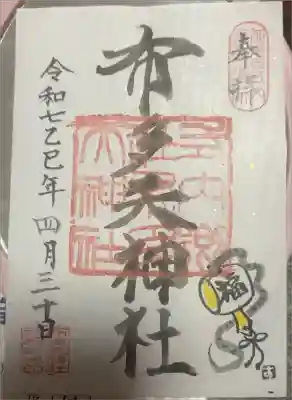 奉拝
布多天神社
令和七乙巳年四月三十日
福